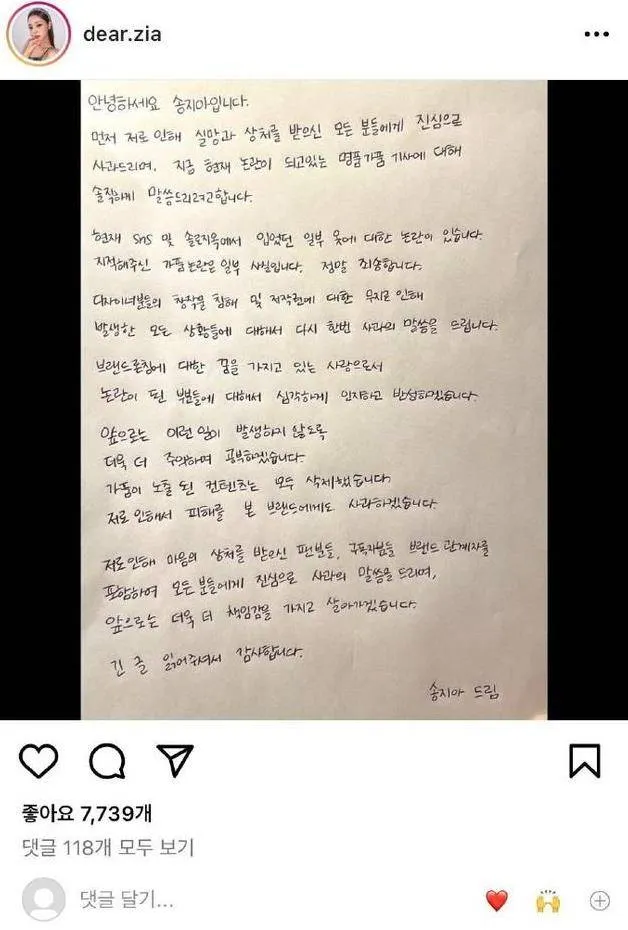 dear.zia
안녕하세요 송지아입니다.
먼저 저로 인해 실망과 상처를 받으신 모든 분들에게 진심으로
사과드리며, 지금 현재 논란이 되고있는 명품가품 기사에 대해
솔직하게 말씀드리려고합니다.
현재 SNS 및 솔로지옥에서 입었던 일부 옷에 대한 논란이 있습니다.
지적해주신 가품논란은 일부 사실입니다. 정말 죄송합니다.
디자이너분들의 창작물 침해 및 저작권에 대한 무지로 인해
발생한 모든 상황들에 대해서 다시 한번 사과의 말씀을 드립니다.
브랜드론칭에 대한 꿈을 가지고 있는 사람으로서
논란이 된 부분들에 대해서 심각하게 인지하고 반성하겠습니다.
앞으로는 이런 일이 발생하지 않도록
더욱 더 주의하며 공부하겠습니다.
가품이 노출 된 컨텐츠는 모두 삭제했습니다.
저로 인해서 피해를 본 브랜드에게도 사과하겠습니다.
저로인해 마음의 상처를 받으신 팬분들, 구독자분들 브랜드 관계자를
포함하여 모든 분들에게 진심으로 사과의 말씀을 드리며,
앞으로는 더욱 더 책임감을 가지고 살아가겠습니다.
긴 글 읽어주셔서 감사합니다.
송지아 드림
좋아요 7,739개
댓글 118개 모두 보기
댓글 달기...